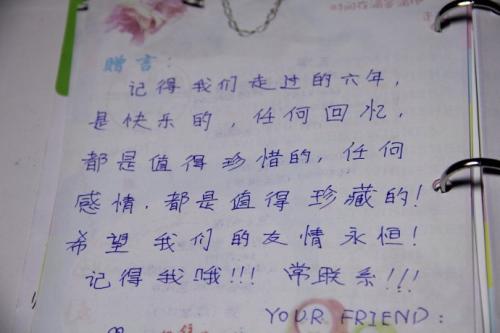 赠言:
记得我们走过的六年,
是快乐的,任何回忆,
都是值得珍惜的,任何
感情.都是值得珍藏的!
希望我们的友情永恒!
记得我哦!!! 常联系!!!
YOUR FRIEND: